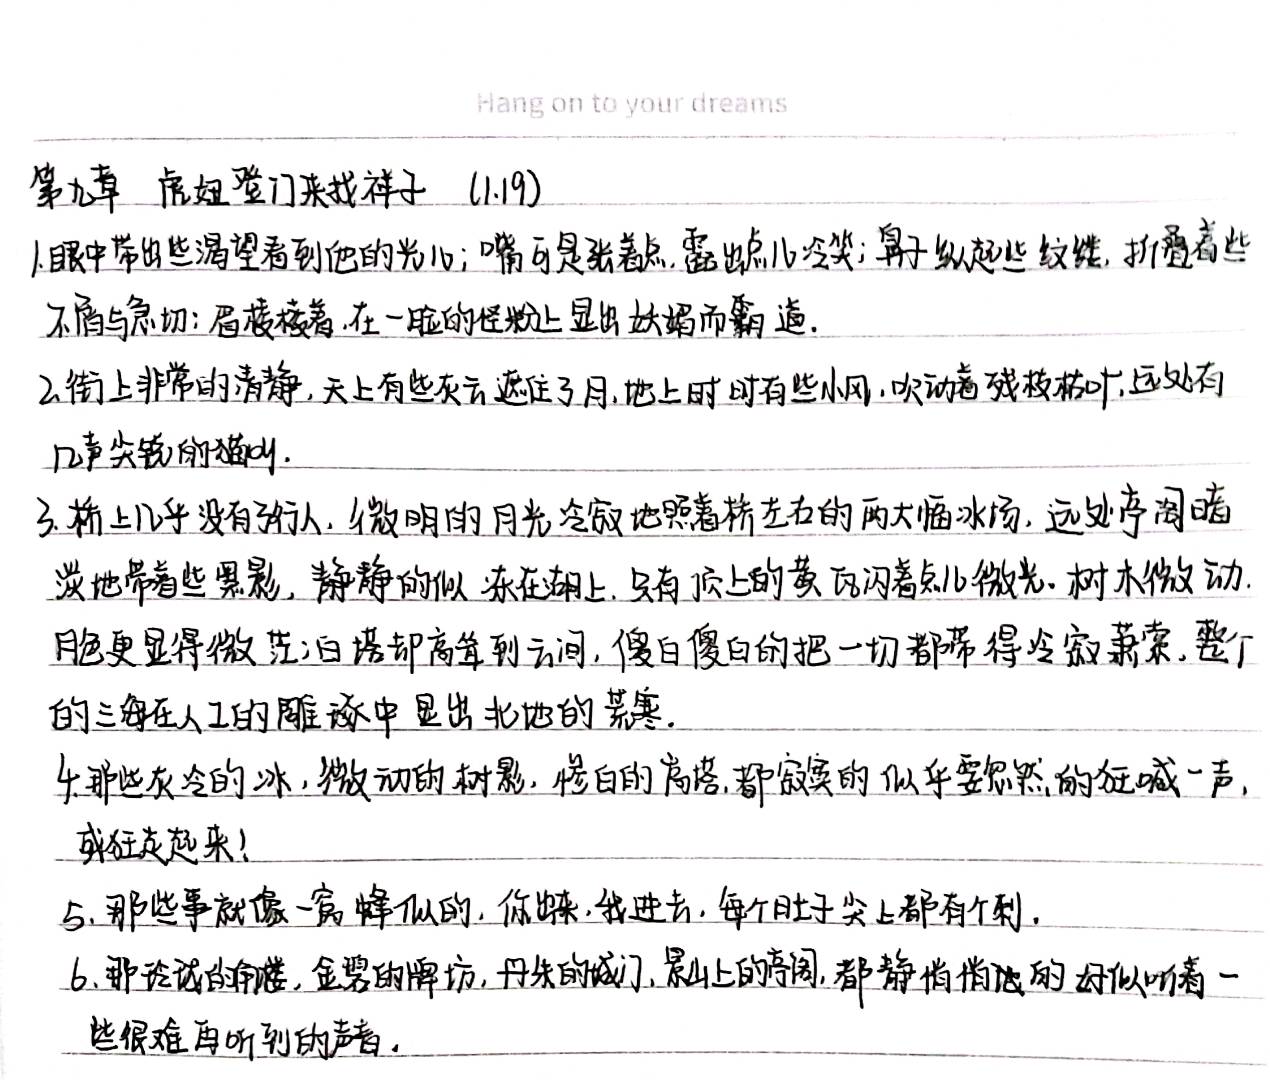 Hang on to your dreams
第九章 虎妞登门来找祥子 (1.19)
1.眼中带出些渴望看到他的光儿；嘴可是张着点，露出点儿冷笑；鼻子纵起些纹缕，折叠着些
不屑与急切；眉棱棱着，在一脸的怪粉上显出妖媚而霸道．
2.街上非常的清静，天上有些灰云遮住了月，地上时时有些小风，吹动着残枝枯叶，远处有
几声尖锐的猫叫．
3.桥上几乎没有了行人，微明的月光冷寂地照着桥左右的两大幅冰场，远处亭阁暗
淡地带着些黑影，静静的似冻在湖上，只有顶上的黄瓦闪着点儿微光。树木微动，
月色更显得微茫；白塔却高耸到云间，傻白傻白的把一切都带得冷寂萧索，整个
的三海在人工的雕琢中显出北地的荒寒．
4.那些灰冷的冰，微动的树影，惨白的高塔，都寂寞的似乎要忽然的狂喊一声，
或狂走起来！
5.那些事就像一窝蜂似的，你出来，我进去，每个肚子尖上都有个刺．
6.那 的角楼，金碧的牌坊，丹朱的城门，景山上的亭阁，都静悄悄地的好似听着一
些很难再听到的声音．